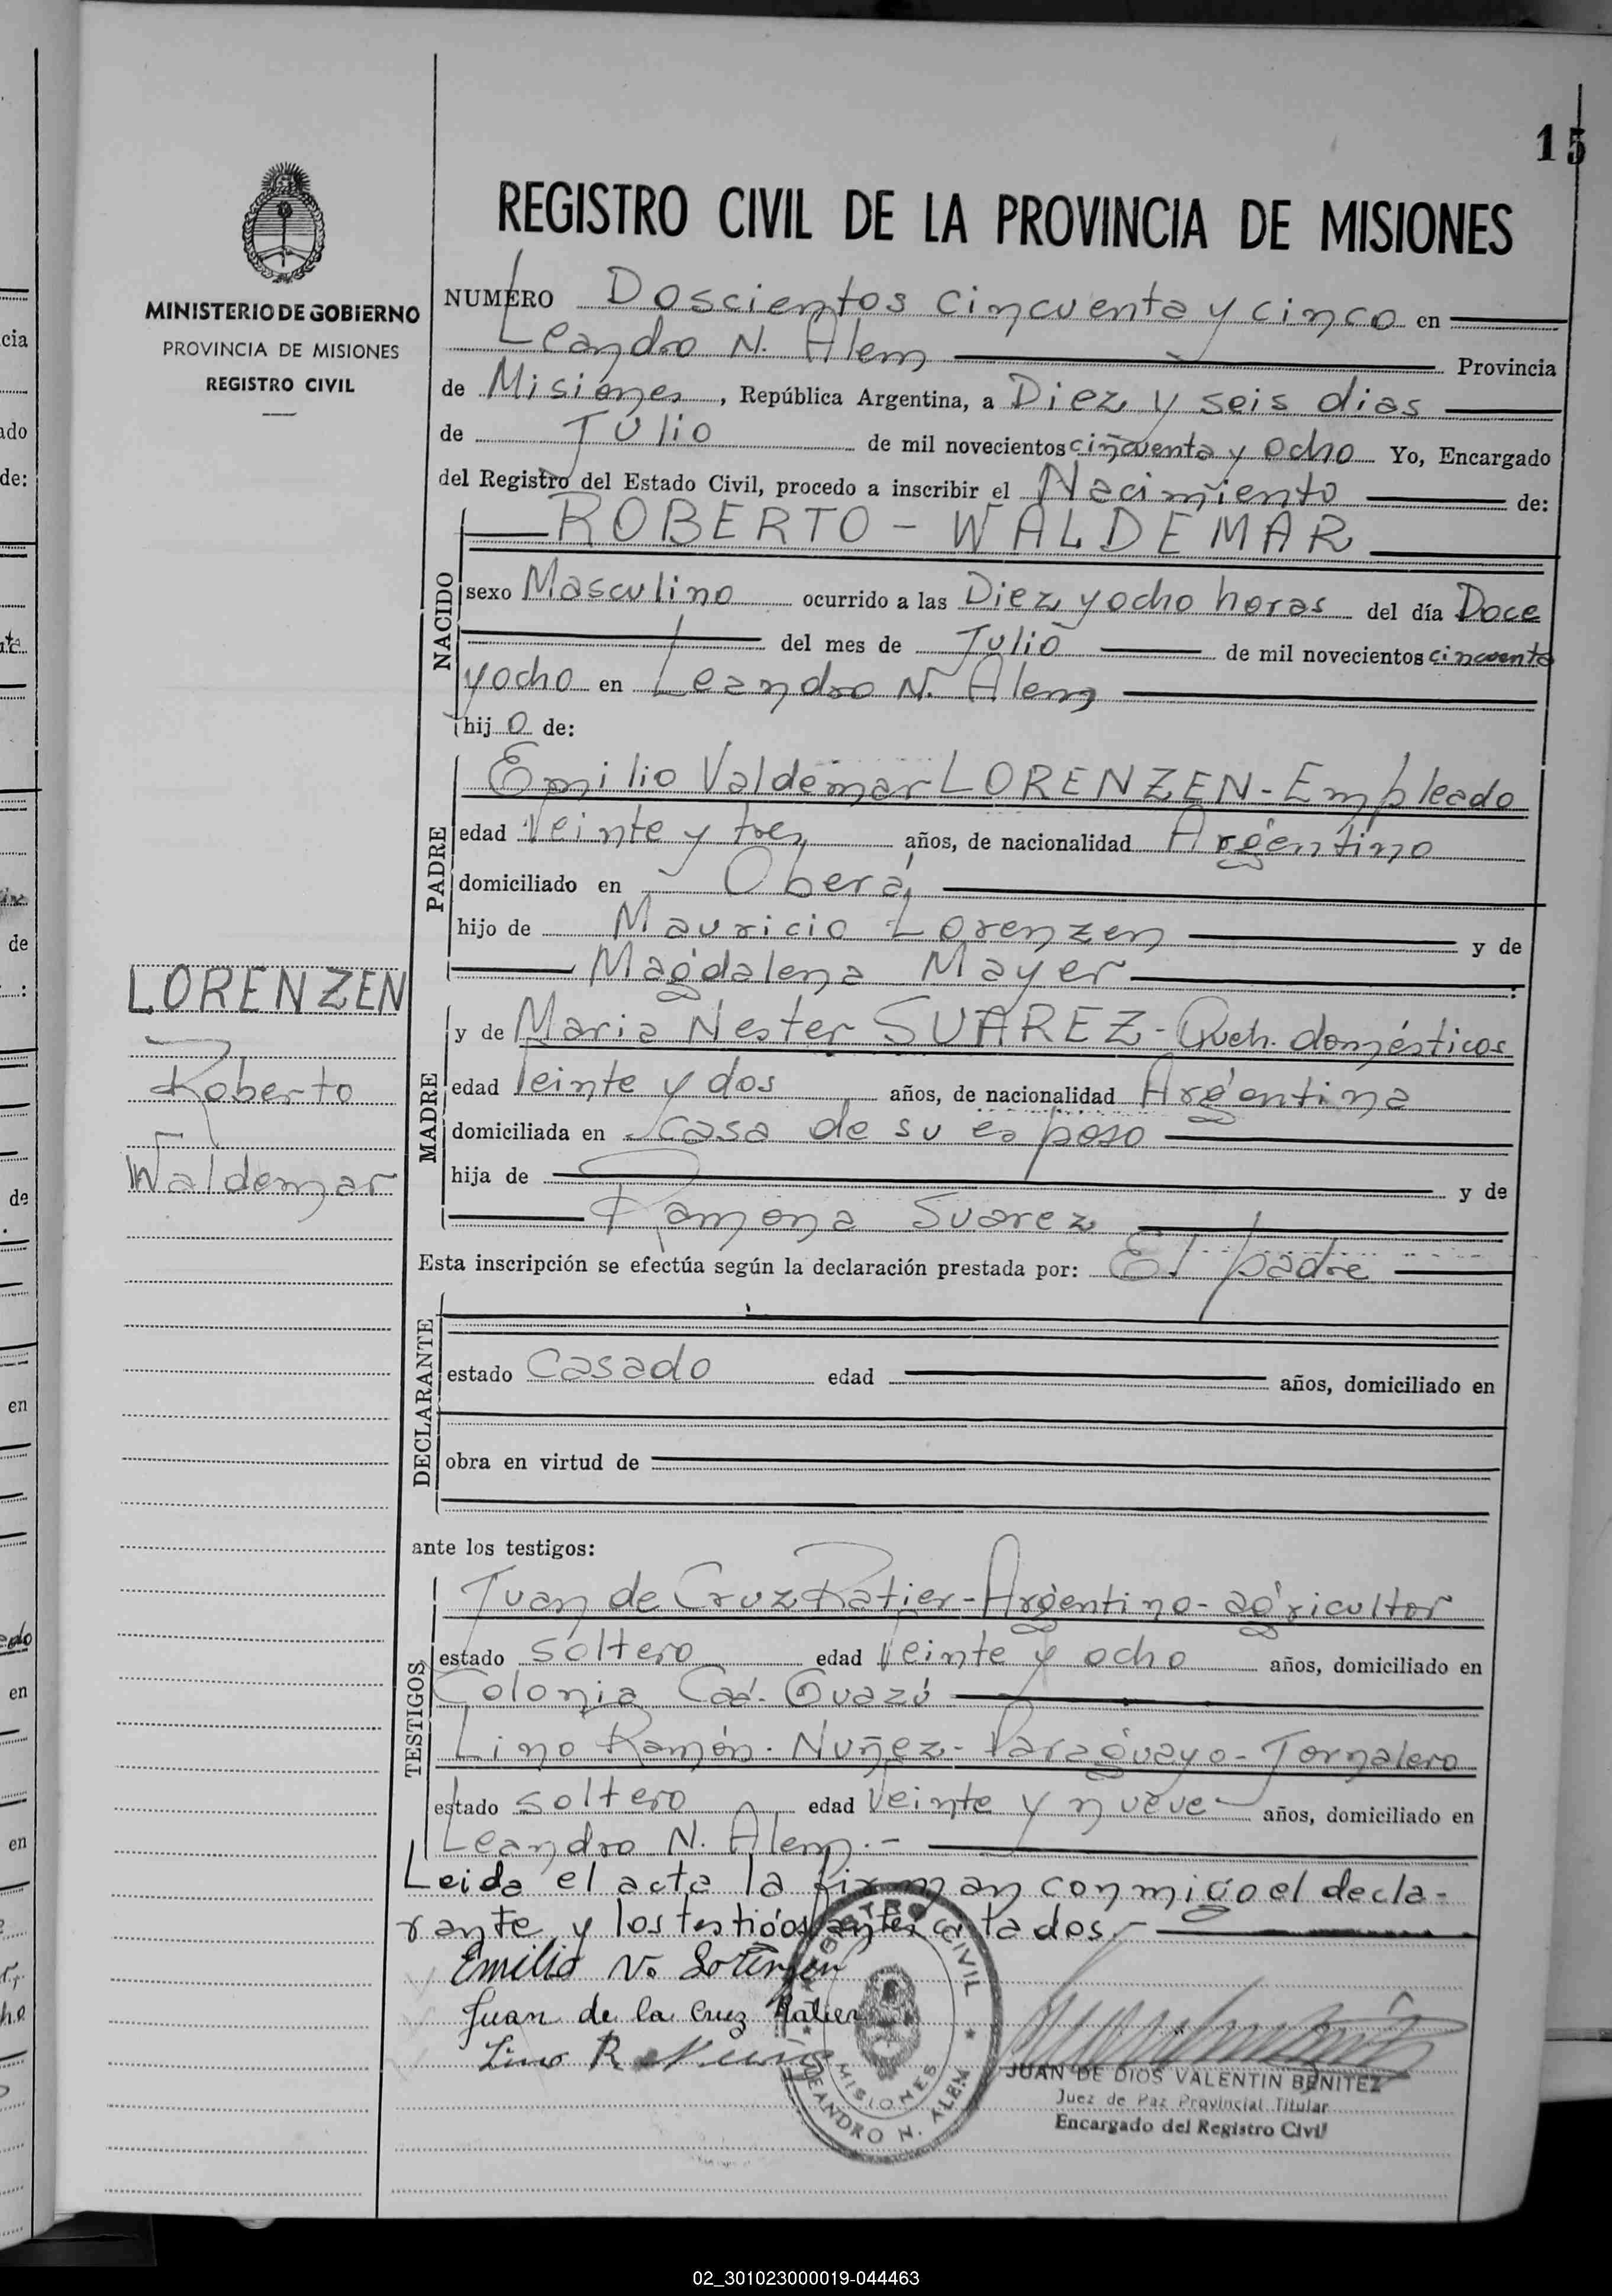 15
REGISTRO CIVIL DE LA PROVINCIA DE MISIONES
MINISTERIO DE GOBIERNO
PROVINCIA DE MISIONES
REGISTRO CIVIL
NUMERO Doscientos cincuenta y cinco en
Leandro N. Alem Provincia
de Misiones, República Argentina, a Diez y seis dias
de Julio de mil novecientos cincuenta y ocho Yo, Encargado
del Registro del Estado Civil, procedo a inscribir el Nacimiento de:
ROBERTO - WALDEMAR
NACIDO
sexo Masculino ocurrido a las Diez y ocho horas del día Doce
del mes de Julio de mil novecientos cincuenta
y ocho en Leandro N. Alem
hijo de:
PADRE
Emilio Valdemar LORENZEN - Empleado
edad Veinte y tres años, de nacionalidad Argentino
domiciliado en Oberá
hijo de Mauricio Lorenzen y de
Magdalena Mayer :
LORENZEN
Roberto
Waldemar
MADRE
y de Maria Nester SUAREZ - Queh. domésticos
edad Veinte y dos años, de nacionalidad Argentina
domiciliada en casa de su esposo
hija de y de
Ramona Suarez
Esta inscripción se efectúa según la declaración prestada por: El padre
DECLARANTE
estado Casado edad años, domiciliado en
obra en virtud de
ante los testigos:
TESTIGOS
Juan de Cruz Ratier - Argentino - agricultor
estado soltero edad Veinte y ocho años, domiciliado en
Colonia Caá - Guazú
Lino Ramón - Nuñez - Paraguayo - Jornalero
estado soltero edad Veinte y nueve años, domiciliado en
Leandro N. Alem.-
Leida el acta la firman conmigo el decla-
rante y los testigos antes citados.-
Emilio V. Lorenzen
Juan de la Cruz Ratier
Lino R. Nuñez
REGISTRO CIVIL
MISIONES
LEANDRO N. ALEM
JUAN DE DIOS VALENTIN BENITEZ
Juez de Paz Provincial Titular
Encargado del Registro Civil
cia
ado
de:
de
de
en
en
en
02_301023000019-044463